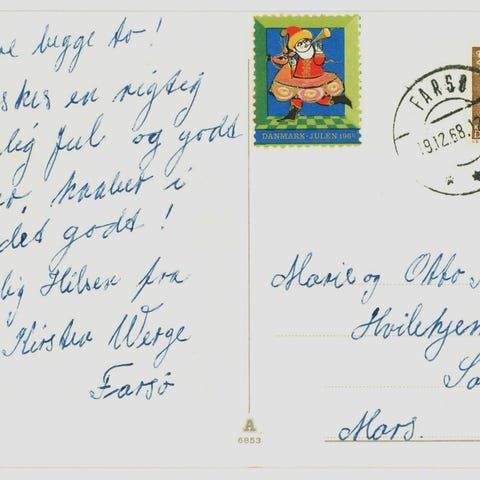 begge to!
en rigtig
lig Jul og godt
haaber i
det godt!
lig Hilsen fra
Kirsten Werge
Farsø
DANMARK · JULEN 1968
FARSØ
19.12.68.
Marie og Otto
Hvilehjem
Mors.
A
6853